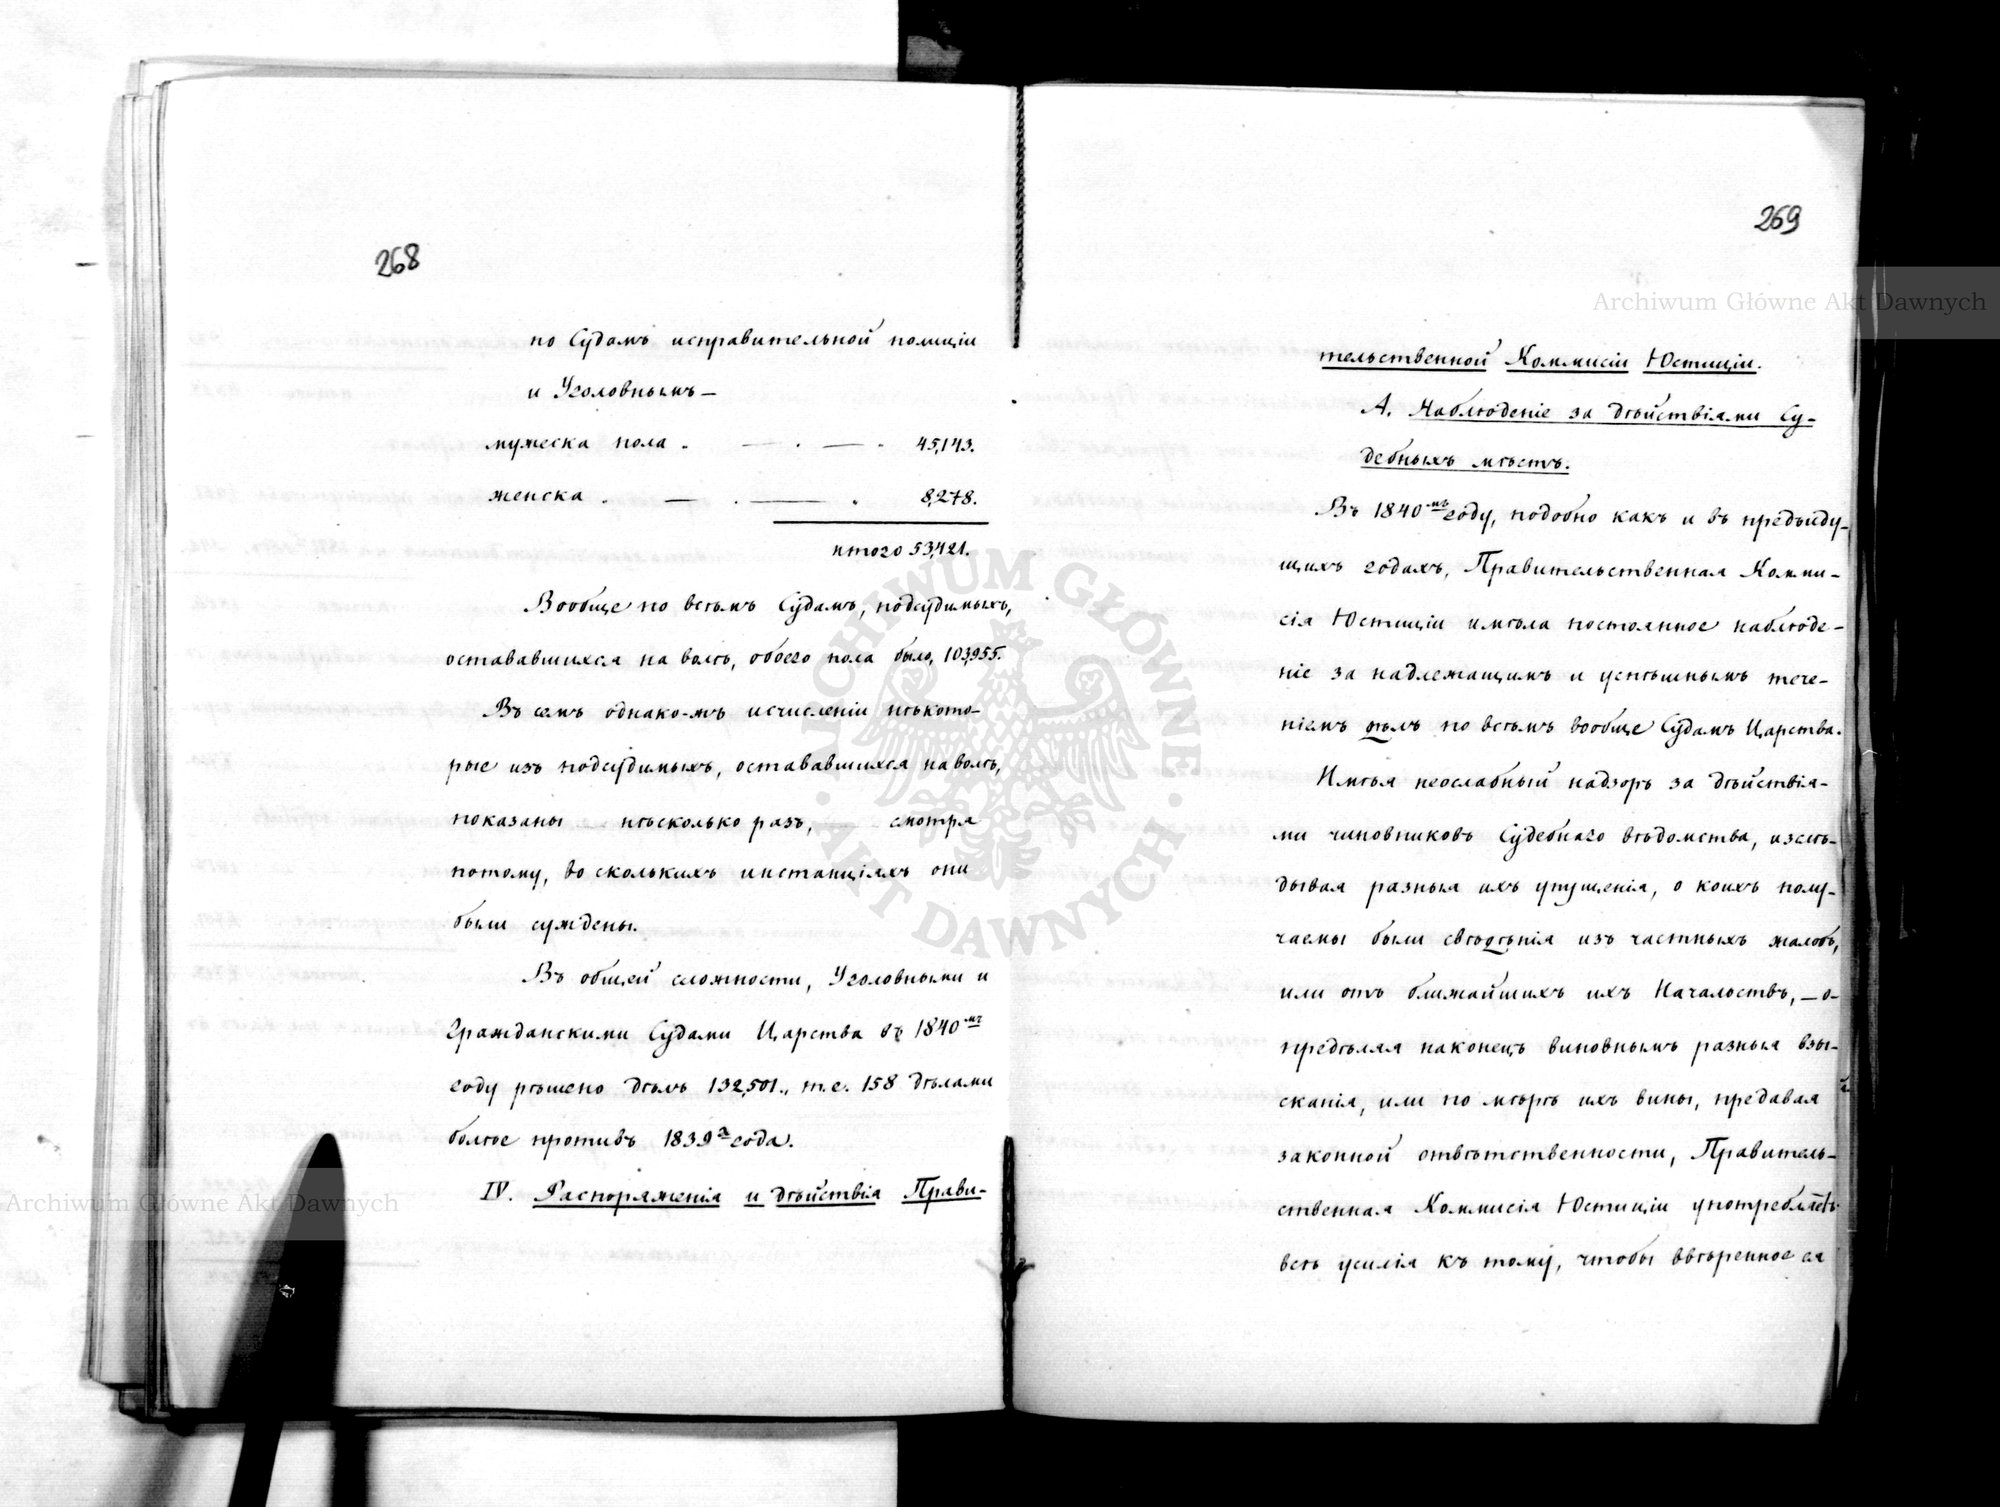 268
по Судамъ исправительной полиціи
и Уголовнымъ —
мужеска пола . — . — . 45,143.
женска . — . — . 8,278.
итого 53,421.
Вообще по всѣмъ Судамъ, подсудимыхъ,
остававшихся на волѣ, обоего пола было, 103,955.
Въ семъ однако-жъ исчисленіи нѣкото-
рые изъ подсудимыхъ, остававшихся на волѣ,
показаны нѣсколько разъ, смотря
потому, во сколькихъ инстанціяхъ они
были суждены.
Въ общей сложности, Уголовными и
Гражданскими Судами Царства въ 1840мъ
году рѣшено дѣлъ 132,501., т.е. 158 дѣлами
болѣе противъ 1839а года.
IV. Распоряженія и дѣйствія Прави-
269
тельственной Коммисіи Юстиціи.
А. Наблюденіе за дѣйствіями Су-
дебныхъ мѣстъ.
Въ 1840мъ году, подобно какъ и въ предъиду-
щихъ годахъ, Правительственная Комми-
сія Юстиціи имѣла постоянное наблюде-
ніе за надлежащимъ и успѣшнымъ тече-
ніемъ дѣлъ по всѣмъ вообще Судамъ Царства.
Имѣя неослабный надзоръ за дѣйствія-
ми чиновниковъ Судебнаго вѣдомства, изслѣ-
дывая разныя ихъ упущенія, о коихъ полу-
чаемы были свѣдѣнія изъ частныхъ жалобъ,
или отъ ближайшихъ ихъ Начальствъ, — о-
предѣляя наконецъ виновнымъ разныя взы-
сканія, или по мѣрѣ ихъ вины, предавая
законной отвѣтственности, Правитель-
ственная Коммисія Юстиціи употребляетъ
всѣ усилія къ тому, чтобы ввѣренное ея
Archiwum Główne Akt Dawnych
Archiwum Główne Akt Dawnych
· ARCHIWUM GŁÓWNE · AKT DAWNYCH